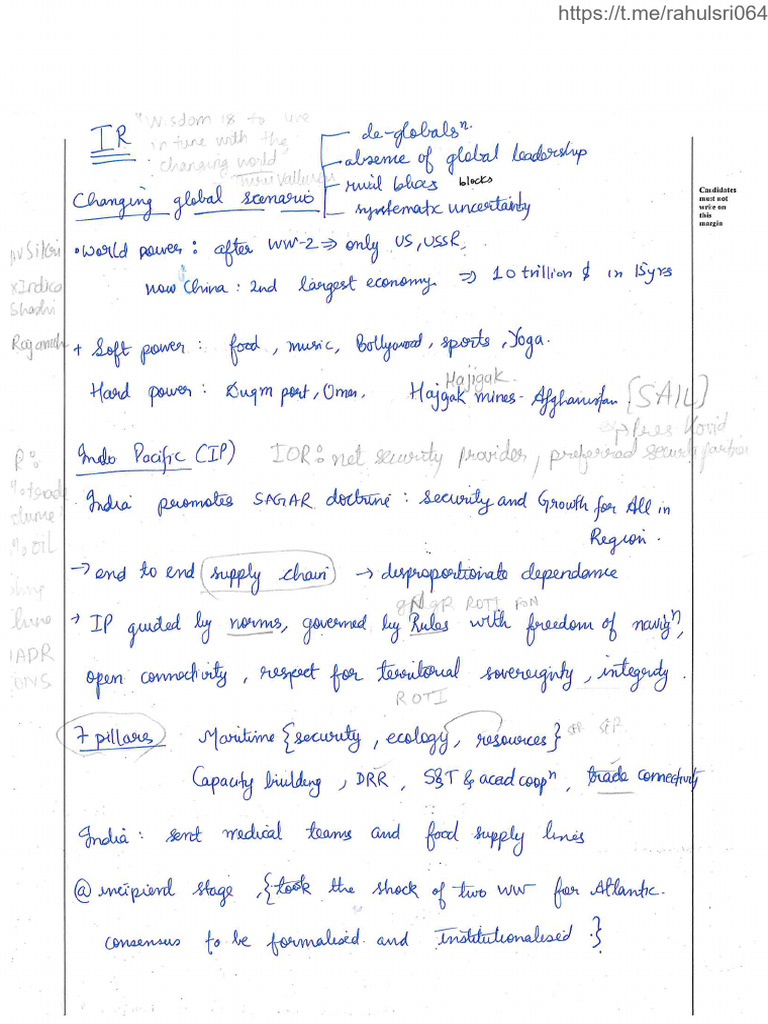 https://t.me/rahulsri064
IR
"Wisdom is to live
in tune with the
changing world
Tiruvalluvar
Changing global scenario
de-globalsⁿ.
absence of global leadership
rival blocs blocks
systematic uncertainty
Candidates
must not
write on
this
margin
• World power: after WW-2 ⇒ only US, USSR.
now China: 2nd largest economy ⇒ 10 trillion $ in 15yrs
Sikri
xIndica
Shashi
Rajamoh
+ Soft power: food, music, Bollywood, sports, Yoga.
Hajigak
Hard power: Duqm port, Oman. Hajgak mines - Afghanistan [SAIL]
Indo Pacific (IP) IOR: net security provider, preferred security partner
India promotes SAGAR doctrine: Security and Growth for All in
Region.
% oil
→ end to end supply chain → disproportionate dependance
ROTI FON
→ IP guided by norms, governed by Rules with freedom of navigⁿ,
open connectivity, respect for territorial sovereignty, integrity.
ROTI
7 pillars Maritime {security, ecology, resources}
Capacity building, DRR, S&T & acad coopⁿ, trade connectivity
India: sent medical teams and food supply lines
@ incipient stage, {took the shock of two WW for Atlantic
consensus to be formalised and Institutionalised.}